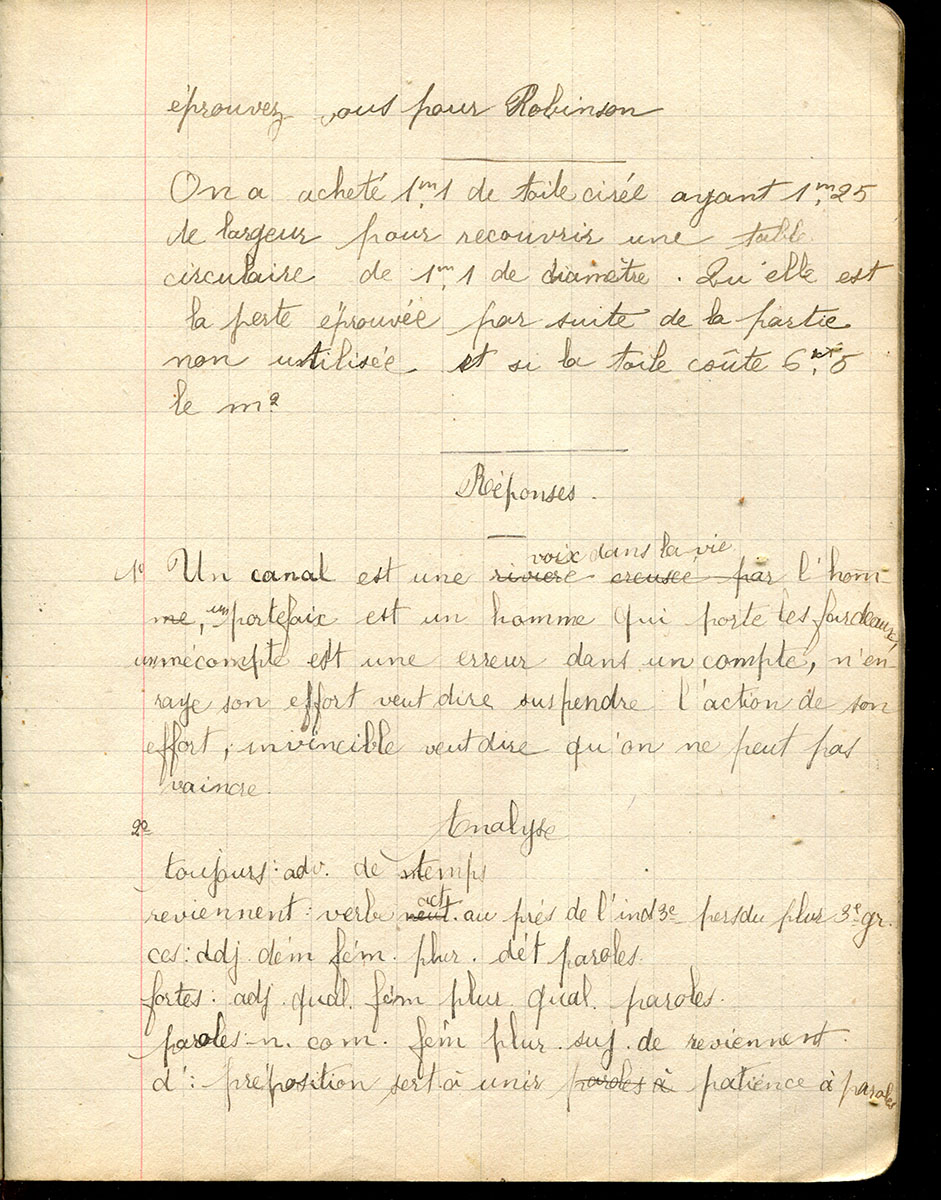 éprouvez vous pour Robinson
On a acheté 1m,1 de toile cirée ayant 1m,25
de largeur pour recouvrir une table
circulaire de 1m,1 de diamètre. Qu'elle est
la perte éprouvée par suite de la partie
non utilisée et si la toile coûte 6 , 5
le m2
Réponses.
voix dans la vie
1º Un canal est une riviere creusée par l'hom-
me, un portefaix est un homme qui porte les fardeaux,
un mécompte est une erreur dans un compte, n'en-
raye son effort veut dire suspendre l'action de son
effort, invincible veut dire qu'on ne peut pas
vaincre.
2º Analyse
toujours: adv. de temps
act
reviennent: verbe neut. au prés de l'ind 3e pers du plur 3e gr.
ces: adj dém fém. plur. dét paroles.
fortes: adj. qual. fém plur qual. paroles.
paroles: n. com. fém plur. suj. de reviennent.
d': préposition sert à unir paroles à patience à paroles